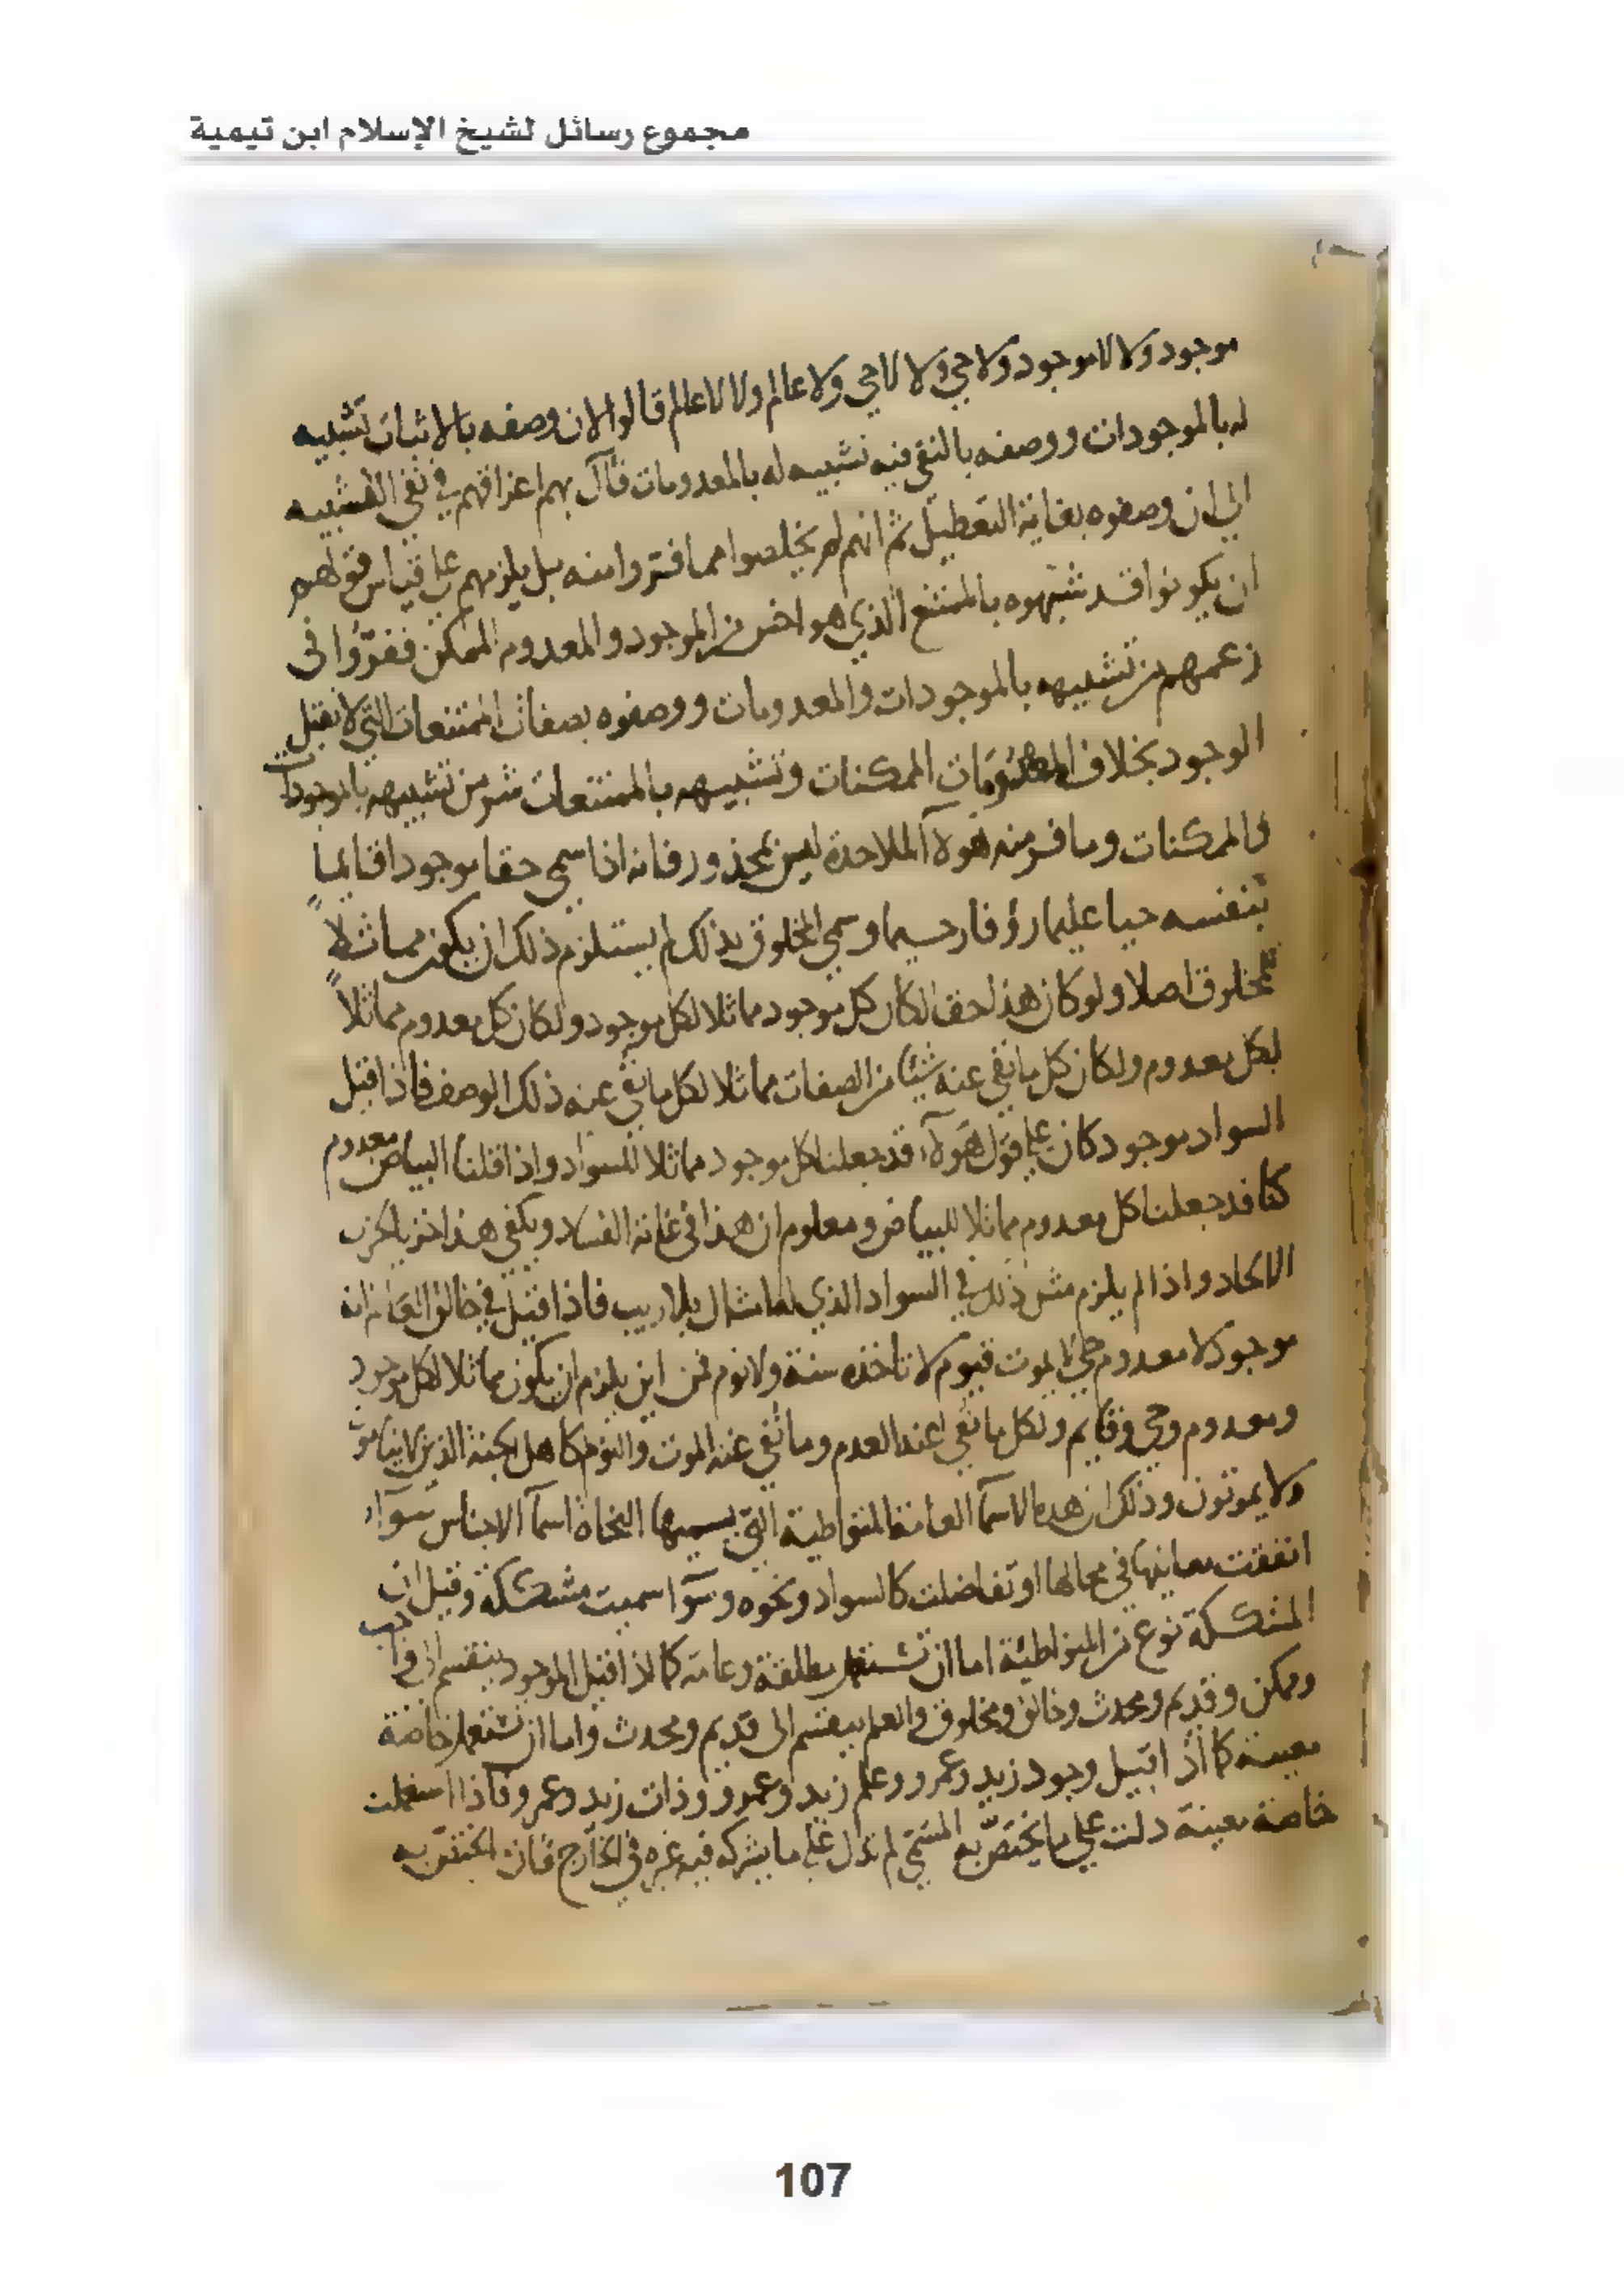 مجموع رسائل لشيخ الإسلام ابن تيمية
موجود ولا لاموجود ولا حي ولا لاحي ولا عالم ولا لاعالم قالوا لان وصفه بالاثبات تشبيه
له بالموجودات ووصفه بالنفي فيه تشبيه له بالمعدومات فآل بهم اغراقهم في نفي التشبيه
الى ان وصفوه بغاية التعطيل ثم انهم لم يخلصوا مما فروا منه بل يلزمهم على قياس قولهم
ان يكونوا قد شبهوه بالممتنع الذي هو اخس من الموجود والمعدوم الممكن ففروا في
زعمهم من تشبيهه بالموجودات والمعدومات ووصفوه بصفات الممتنعات التي لا تقبل
الوجود بخلاف المعدومات الممكنات وتشبيهه بالممتنعات شر من تشبيهه بالموجودات
والممكنات وما فر منه هولآ الملاحدة ليس بمحذور فانه اذا سمي حقا موجودا قايما
بنفسه حيا عليما رؤفا رحيما وسمي المخلوق بذلك لم يستلزم ذلك ان يكون مماثلا
للمخلوق اصلا ولو كان هذا حقا لكان كل موجود مماثلا لكل موجود ولكان كل معدوم مماثلا
لكل معدوم ولكان كل ما نفي عنه شيئا من الصفات مماثلا لكل ما نفي عنه ذلك الوصف فاذا قيل
السواد موجود كان على قول هولآء قد جعلنا كل موجود مماثلا للسواد واذا قلنا البياض معدوم
كنا قد جعلنا كل معدوم مماثلا للبياض ومعلوم ان هذا في غاية الفساد ويكفي هذا خزيا لحزب
الالحاد واذا لم يلزم مثل ذلك في السواد الذي له امثال بلا ريب فاذا قيل في خالق العالم انه
موجود لا معدوم حي لا يموت قيوم لا تاخذه سنة ولا نوم فمن اين يلزم ان يكون مماثلا لكل موجود
ومعدوم وحي وقايم ولكل ما نفي عنه العدم وما نفي عنه الموت والنوم كاهل الجنة الذين لا ينامون
ولا يموتون وذلك ان هذه الاسمآ العامة المتواطية التي يسميها النحاة اسمآ الاجناس سوآء
اتفقت معانيها في محالها او تفاضلت كالسواد ونحوه وسوآ سميت مشككة وقيل ان
المشككة نوع من المتواطئة اما ان تستعمل مطلقة وعامه كما اذا قيل الموجود ينقسم الى واجب
وممكن وقديم ومحدث وخالق ومخلوق والعلم ينقسم الى قديم ومحدث واما ان تستعمل خاصة
معينة كما اذا قيل وجود زيد وعمرو وعلم زيد وعمرو وذات زيد وعمرو فاذا استعملت
خاصة معينة دلت على ما يختص به المسمى لم تدل على ما يشركه فيه غيره في الخارج فان ما يختص به
107